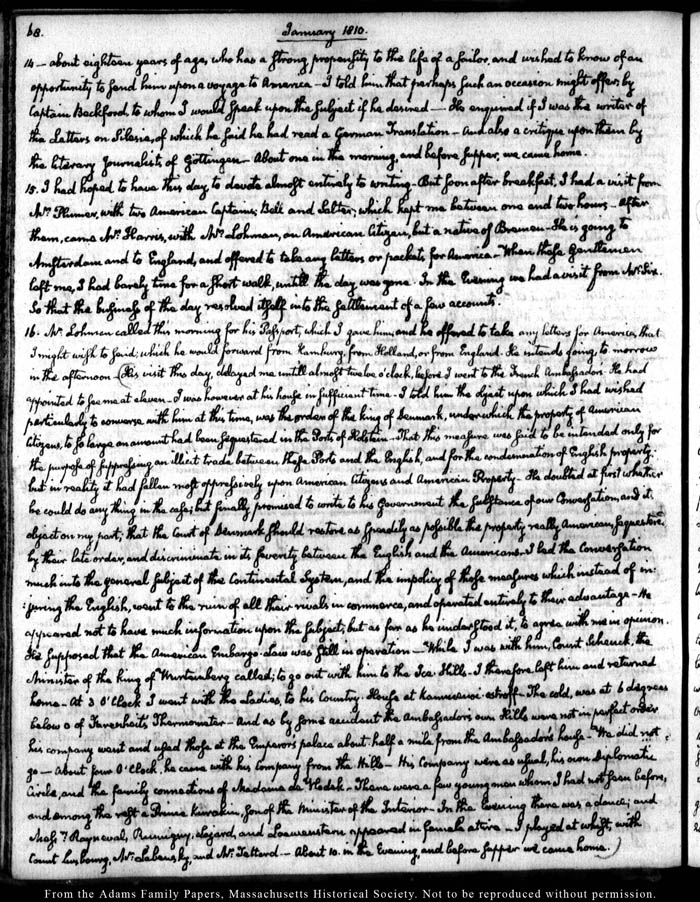 68.
January 1810.
14 — about eighteen years of age, who has a strong propensity to the life of a Sailor, and wished to know of an
opportunity to send him upon a voyage to America — I told him that perhaps such an occasion might offer, by
Captain Beckford to whom I would speak upon the subject if he desired — He enquired if I was the writer of
the Letters on Silesia, of which he said he had read a German Translation — And also a critique upon them by
the literary Journalists of Göttingen — About one in the morning, and before supper, we came home.
15. I had hoped to have this day to devote almost entirely to writing — But soon after breakfast, I had a visit from
Mr Plumer, with two American Captains, Bell and Salter; which kept me between one and two hours — After
them, came Mr Harris, with Mr Lohman, an American Citizen, but a native of Bremen — He is going to
Amsterdam and to England, and offered to take any letters or packets for America — When these Gentlemen
left me, I had barely time for a short walk, untill the day was gone. In the Evening we had a visit from Mr Six.
So that the business of the day resolved itself into the settlement of a few accounts.
16. Mr Lohman called this morning for his Passport, which I gave him, and he offered to take any letters for America, that
I might wish to send; which he would forward from Hamburg, from Holland, or from England. He intends going to morrow
in the afternoon (His visit this day, delayed me untill almost twelve o'clock, before I went to the French Ambassador. He had
appointed to see me at eleven — I was however at his house in sufficient time — I told him the object upon which I had wished
particularly to converse with him at this time, was the order of the king of Denmark, under which the property of American
Citizens, to so large an amount had been sequestered in the Ports of Holstein — That this measure was said to be intended only for
the purpose of suppressing an illicit trade between those Ports and the English, and for the condemnation of English property;
but in reality it had fallen most oppressively upon American Citizens and American Property — He doubted at first whether
he could do any thing in the case; but finally promised to write to his Government the substance of our Conversation, and it.
object on my part; that the Court of Denmark should restore as speedily as possible the property really American, sequestered
by their late order, and discriminate in its severity between the English and the Americans — I led the Conversation
much into the general subject of the Continental System, and the impolicy of those measures which instead of in-
:juring the English, went to the ruin of all their rivals in commerce, and operated entirely to their advantage — He
appeared not to have much information upon the subject, but as far as he understood it, to agree with me in opinion.
He supposed that the American Embargo-Law was still in operation — While I was with him, Count Schenck, the
Minister of the king of Wurtemberg called; to go out with him to the Ice Hills — I therefore left him and returned
home — At 3 O'Clock I went with the Ladies, to his Country-House at — The cold, was at 6 degrees
below 0 of Farenheit's Thermometer — And as by some accident the Ambassador's own Hills were not in perfect order
his company went and used those at the Emperor's palace about half a mile from the Ambassador's house — We did not
go — About four O'Clock, he came with his company from the Hills — His Company were as usual, his own Diplomatic
Circle, and the family connections of Madame de Vlodek — There were a few young men whom I had not seen before,
and among the rest a Prince Kurakin, son of the Minister of the Interior — In the Evening there was a dance; and
Messrs Rayneval, Rumigny, and Loewenstern appeared in female attire — I played at whist, with
Count Luxbourg, Mr Labensky, and Mr — About 10. in the Evening, and before supper we came home.)
From the Adams Family Papers, Massachusetts Historical Society. Not to be reproduced without permission.